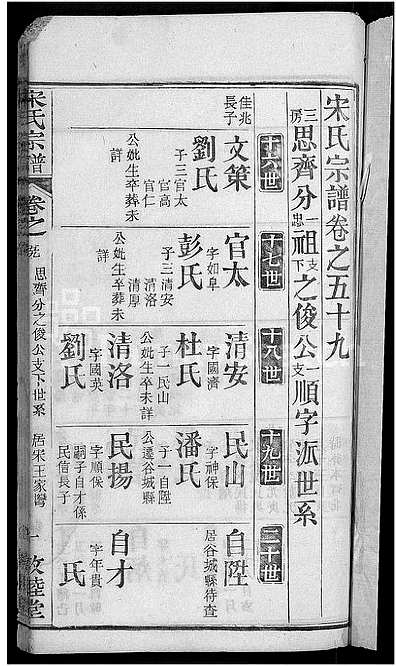 宋氏宗譜卷之五十九
三房思齊分一忠祖支下之俊公一支順字派世系
十六世
十七世
十八世
十九世
二十世
佳兆長子
文策
劉氏
子三官太
官高
官仁
公妣生卒葬未詳
官太
字如阜
彭氏
子三清安
清洛
清厚
公妣生卒葬未詳
清安
字國濟
杜氏
子一民山
公妣生卒未詳
清洛
字國英
劉氏
民山
字神保
潘氏
子一自陞
公遷谷城縣
民揚
字順保
嗣子自才係
民信長子
自陞
居谷城縣待查
自才
字年貴
氏
宋氏宗譜
卷之
思齊分之俊公支下世系
居宋王家灣
一
敦睦堂